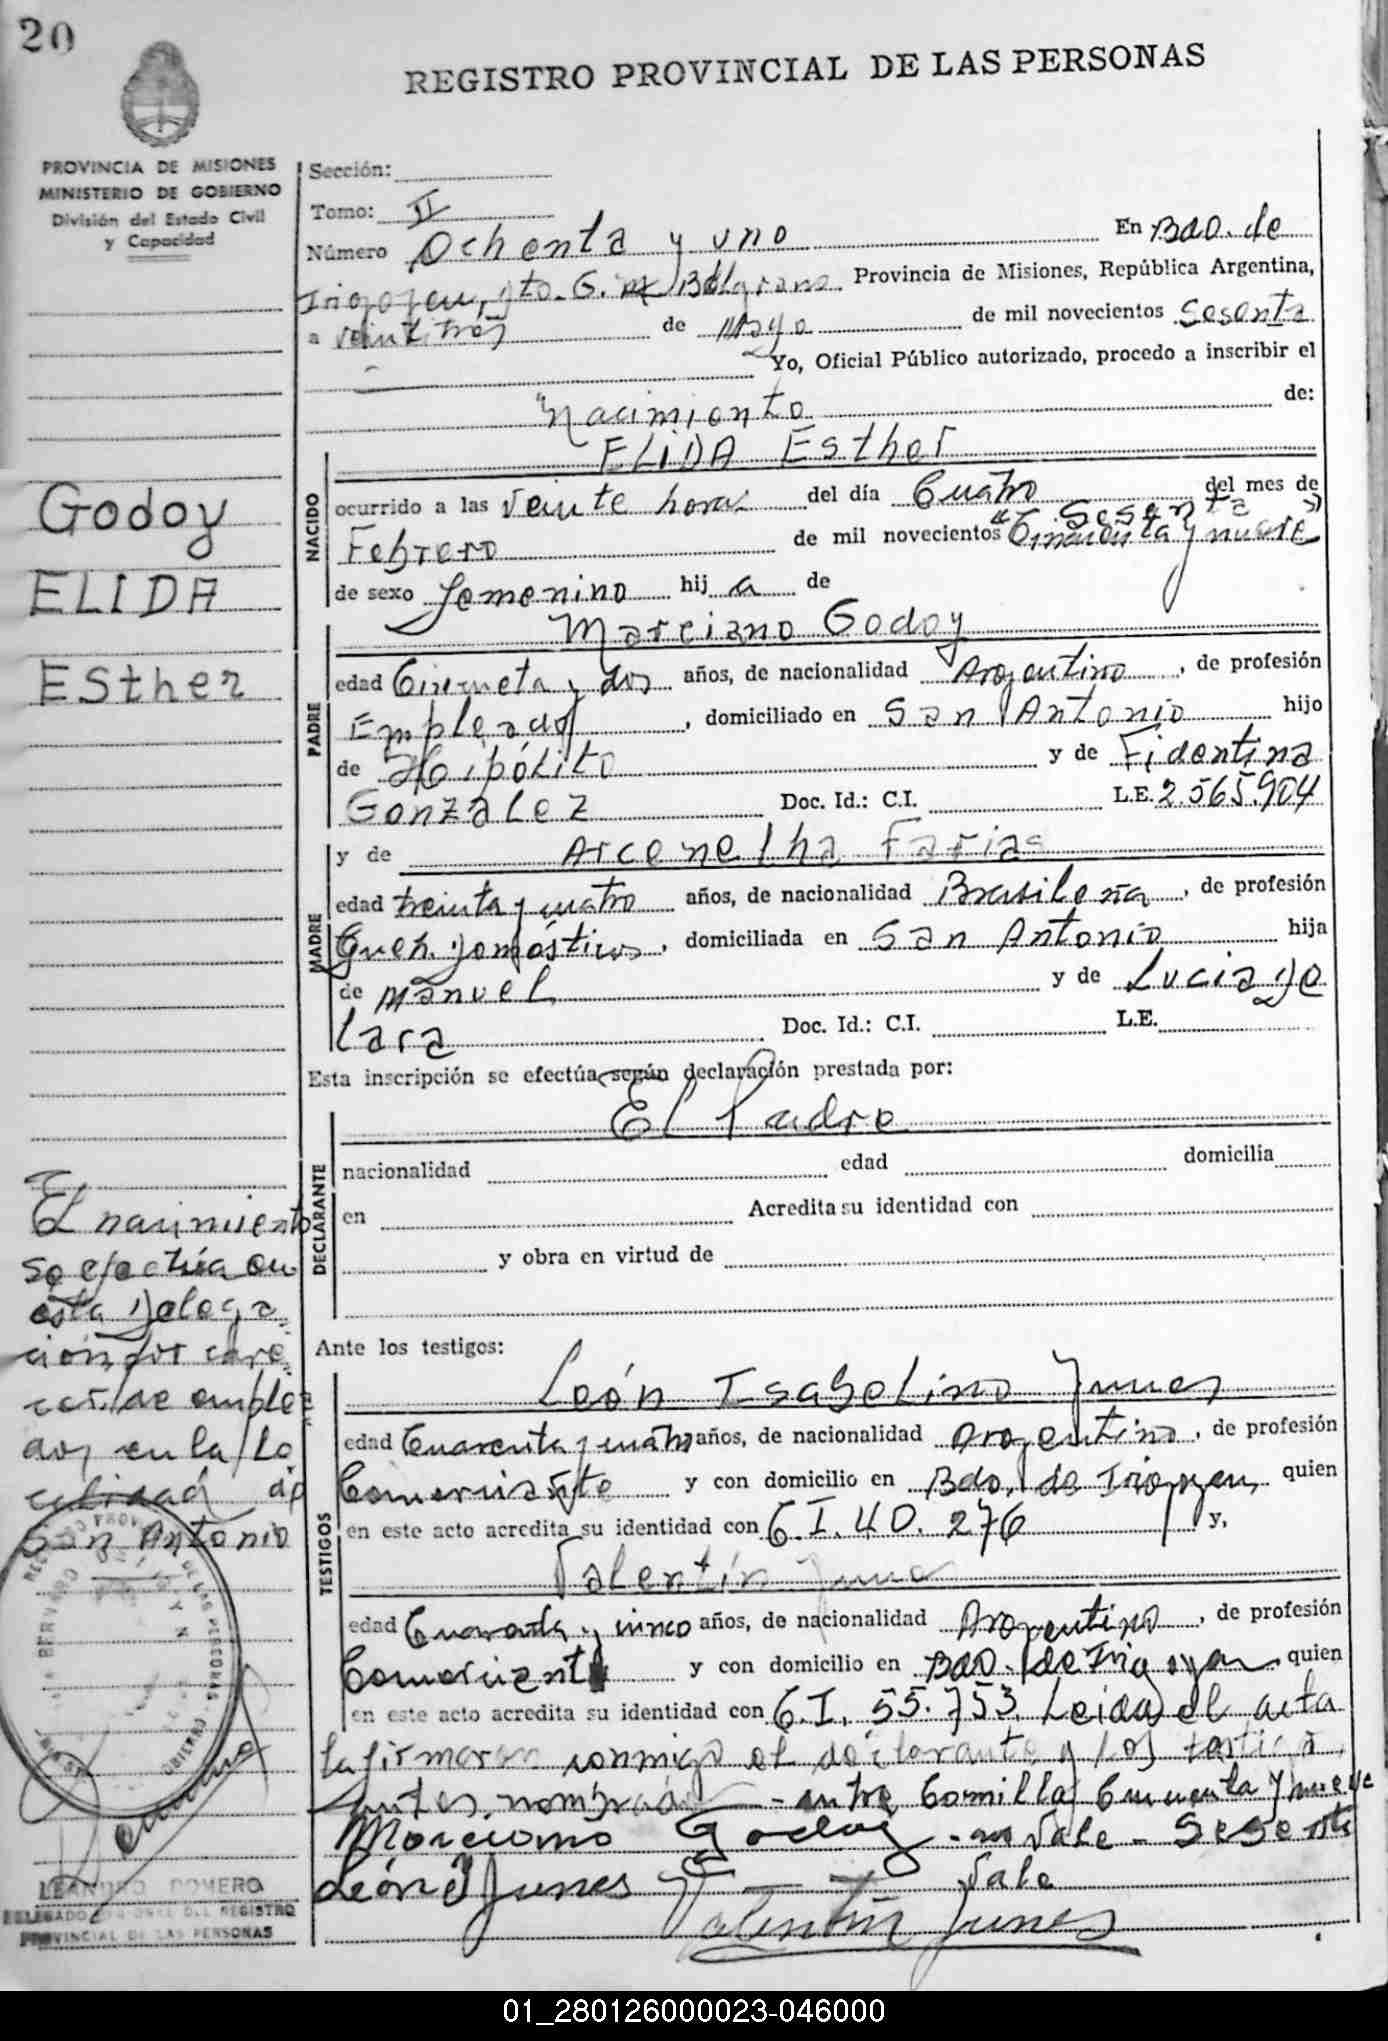 20
REGISTRO PROVINCIAL DE LAS PERSONAS
PROVINCIA DE MISIONES
MINISTERIO DE GOBIERNO
División del Estado Civil
y Capacidad
Sección:
Tomo: II
Número Ochenta y uno En Bdo. de
Irigoyen, Dto. G. M Belgrano. Provincia de Misiones, República Argentina,
a veintitres de Mayo de mil novecientos Sesenta
Yo, Oficial Público autorizado, procedo a inscribir el
Nacimiento de:
ELIDA Esther
Godoy
ELIDA
Esther
NACIDO
ocurrido a las veinte horas del día Cuatro del mes de
Sesenta
Febrero de mil novecientos "Cincuenta y nueve"
de sexo femenino hij a de
PADRE
Marciano Godoy
edad Cincueta y dos años, de nacionalidad Argentino, de profesión
Empleado, domiciliado en San Antonio hijo
de Hipólito y de Fidentina
Gonzalez Doc. Id.: C.I. L.E. 2.565.904
MADRE
y de Arcenelha Farias
edad treinta y cuatro años, de nacionalidad Brasileña, de profesión
Queh. domésticos, domiciliada en San Antonio hija
de Manuel y de Lucia de
Lara Doc. Id.: C.I. L.E.
Esta inscripción se efectúa según declaración prestada por:
DECLARANTE
El Padre
nacionalidad edad domicilia
en Acredita su identidad con
y obra en virtud de
El nacimiento
se efectúa en
ésta Delega
ción por care
cer de emplea
dos en la lo
calidad de
San Antonio
Ante los testigos:
TESTIGOS
León Isabelino Junes
edad Cuarenta y cuatro años, de nacionalidad Argentino, de profesión
Comerciante y con domicilio en Bdo. de Irigoyen, quien
en este acto acredita su identidad con C.I. 40.276 y,
Valentín Junes
edad Cuarenta y cinco años, de nacionalidad Argentino, de profesión
Comerciante y con domicilio en Bdo. de Irigoyen quien
en este acto acredita su identidad con C.I. 55.753. Leida el acta
la firmaron conmigo el declarante y los testigos
antes nombrados - entre Comilla Cincuenta y nueve
Marciano Godoy - no Vale - Sesenta
León I Junes Vale
Valentín Junes
LEANDRO ROMERO
DELEGADO DEL REGISTRO
PROVINCIAL DE LAS PERSONAS
01_280126000023-046000